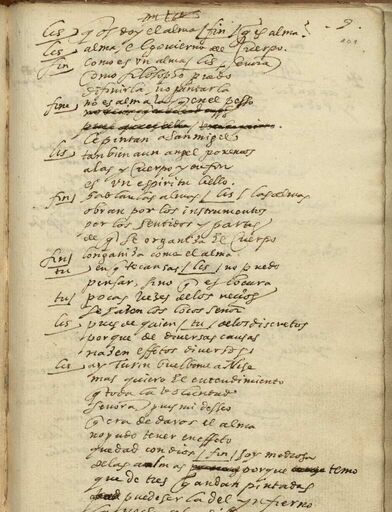 lis/ q̃ os doy el alma / fin / q̃ es alma
lis/ alma, el gouierno del Cuerpo.
fin/ Como es vn alma lis / señora
Como filosopho puedo
difinirla, no pintarla
fine/ no es alma la q̃ en el pesso
le pintan a San miguel
lis/ tambien a un angel ponemos
alas y Cuerpo y en fin
es vn espiritu bello.
fin/ hablan las almas / lis / las almas
obran por los instrumentos
por los sentidos y partes
de q̃ se organiza el Cuerpo
fin/ longaniza come el alma
tu/ en q̃ te cansas / lis / no puedo
pensar, sino q̃ es locura
tu/ pocas vezes de los necios
se hazen los locos señor
lis/ pues de quien / tu / de los discretos
porque de diversas causas
nazen effetos diversos
lis/ ay Turin buelbome a Nise
mas quiero el entendimiento
q̃ toda la voluntad
señora pues mi desseo
q̃ era de daros el alma
no pudo tener effeto
quedad con dios / fin / soy medrosa
de las almas porque temo
que de tres q̃ andan pintadas
puede ser la del ynfierno